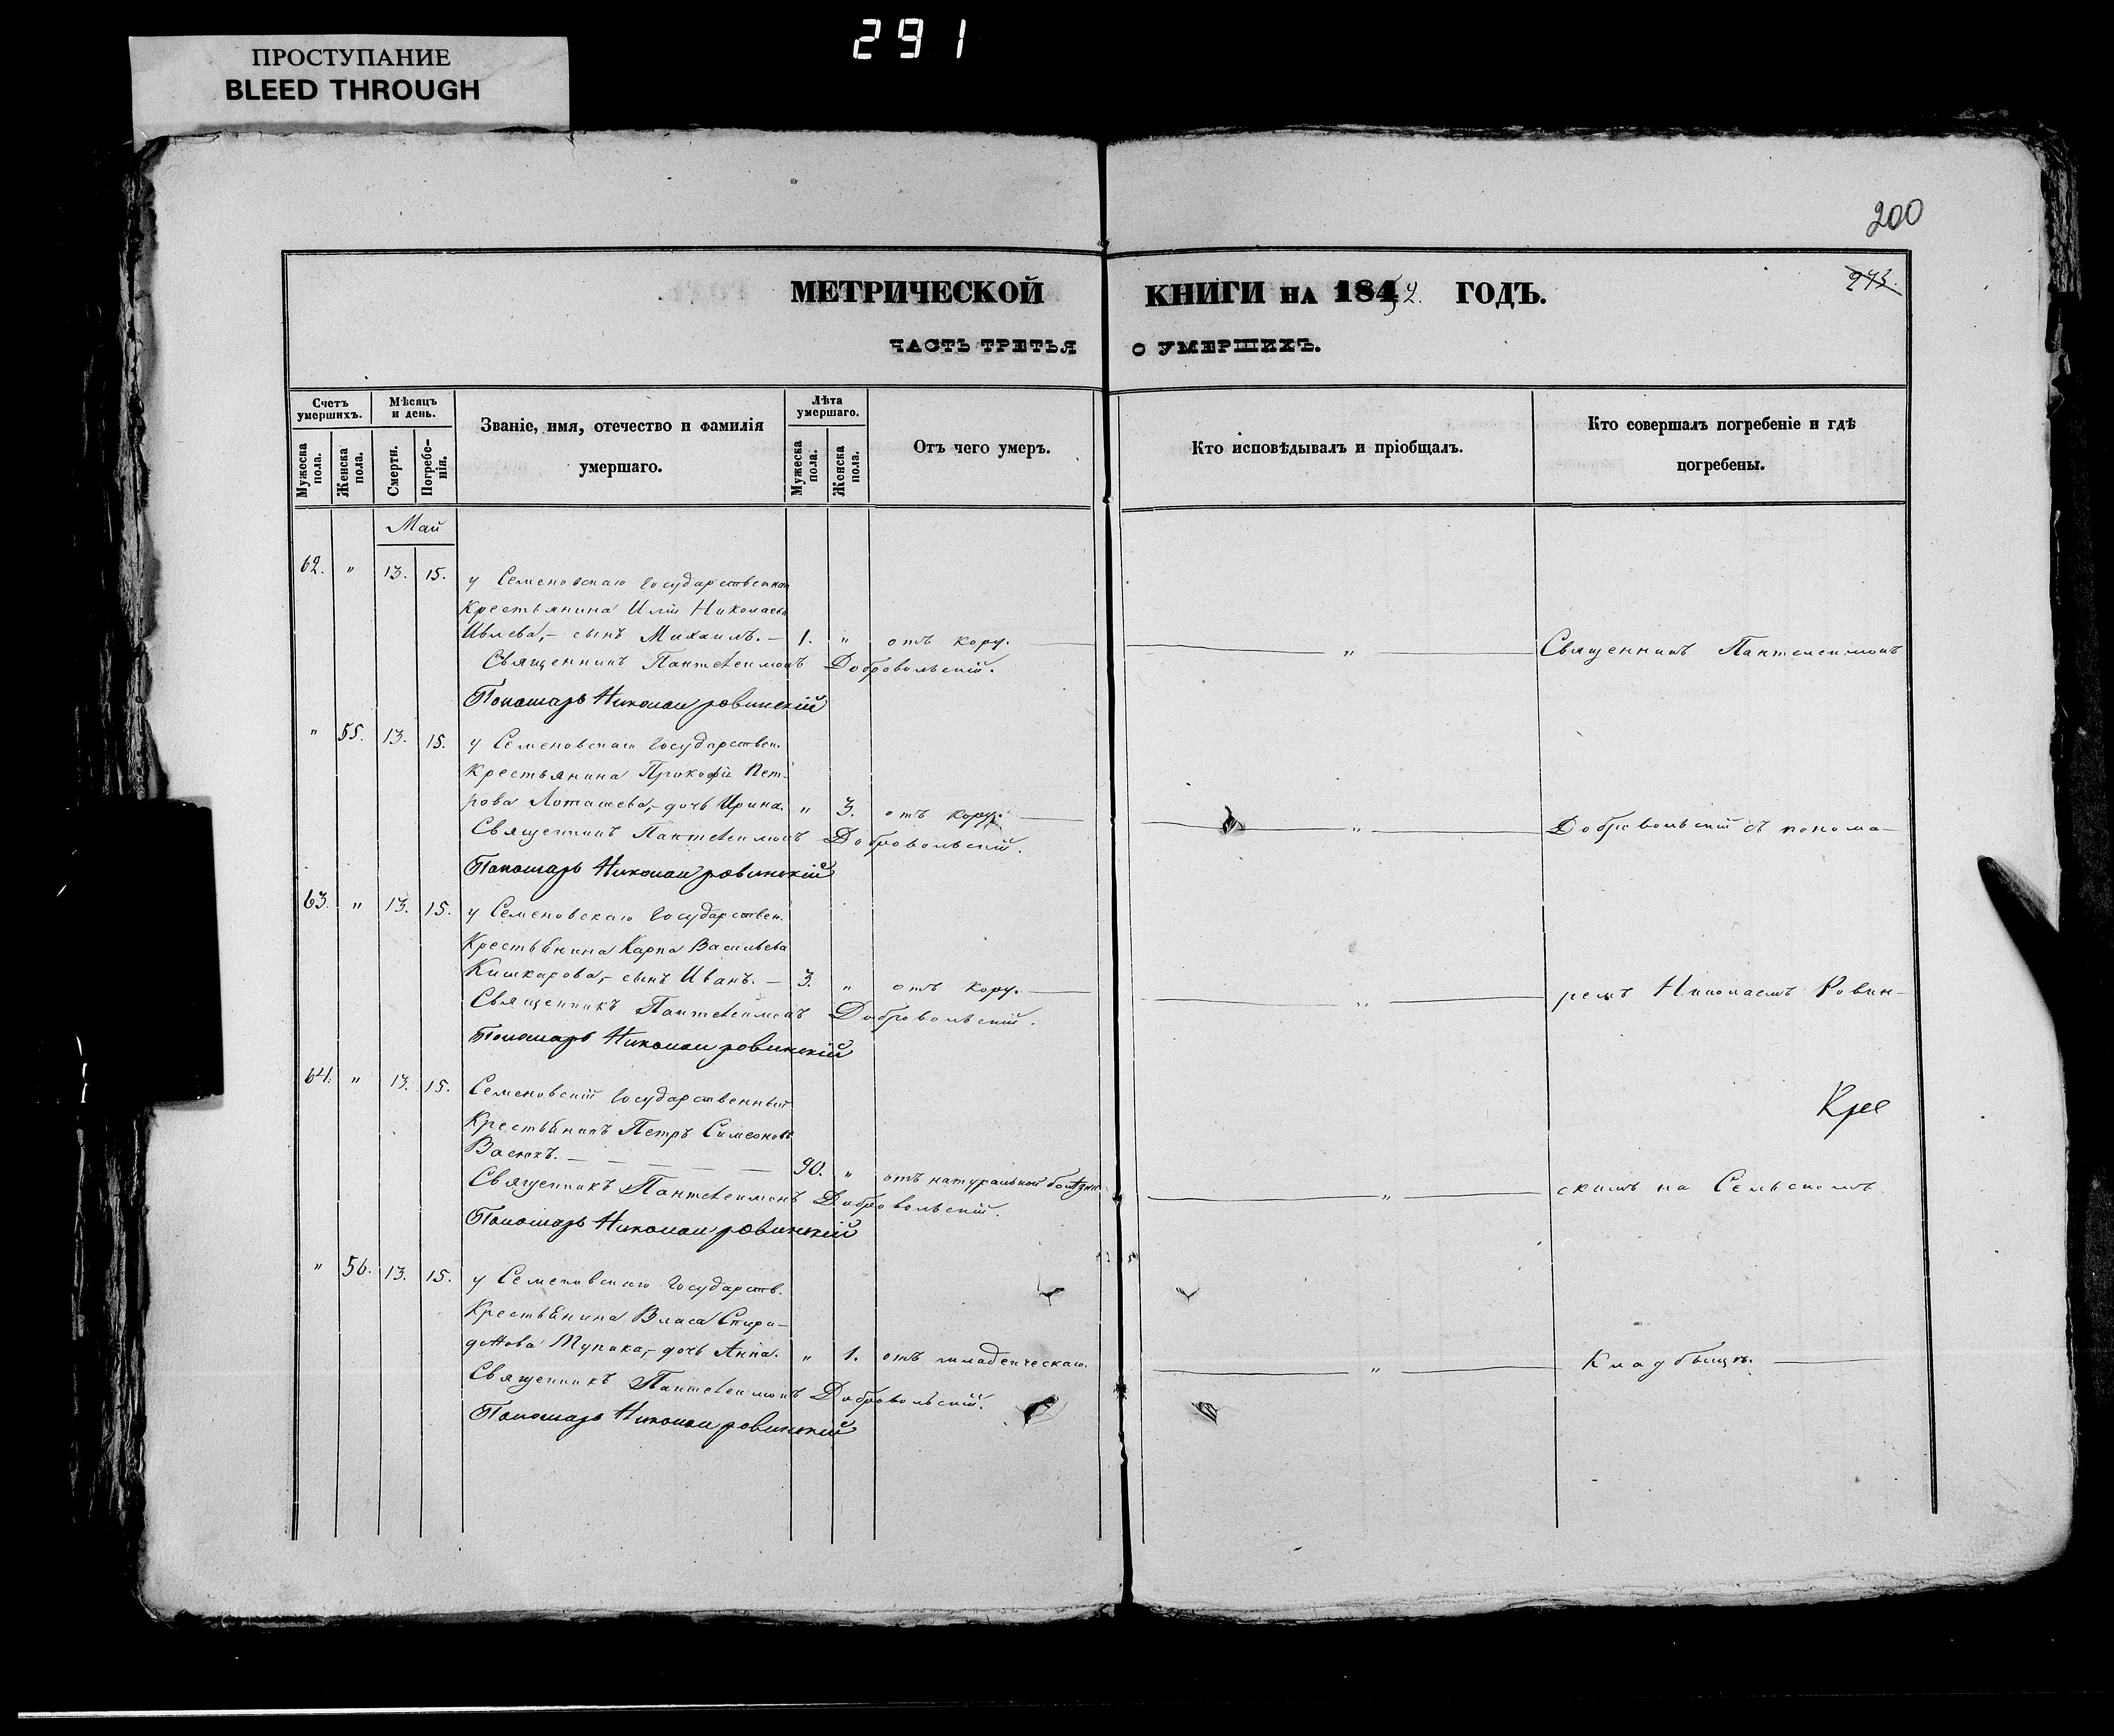 291
ПРОСТУПАНИЕ
BLEED THROUGH
200
273.
МЕТРИЧЕСКОЙ КНИГИ НА 1852. ГОДЪ.
ЧАСТЬ ТРЕТЬЯ О УМЕРШИХЪ.
Счетъ умершихъ.
Мужеска пола.
Женска пола.
Мѣсяцъ и день.
Смерти.
Погребенія.
Званіе, имя, отечество и фамилія
умершаго.
Лѣта умершаго.
Мужеска пола.
Женска пола.
Отъ чего умеръ.
Кто исповѣдывалъ и пріобщалъ.
Кто совершалъ погребеніе и гдѣ
погребены.
Май
62. " 13. 15. у Семеновскаго Государственнаго
Крестьянина Иліи Николаева
Ивлева,- сынъ Михаилъ. — 1. " отъ кору. — " — Священникъ Пантелеимонъ
Священникъ Пантелеимонъ Добровольскій.
Пономарь Николай Ровинскій
" 55. 13. 15. у Семеновскаго Государствен.
Крестьянина Прокофія Пет-
рова Лоташева,- дочь Ирина. " 3. отъ кору. — " — Добровольскій съ понома-
Священникъ Пантелеимонъ Добровольскій.
Пономарь Николай Ровинскій
63. " 13. 15. у Семеновскаго Государствен.
Крестьянина Карпа Васильева
Кишкарова,- сынъ Иванъ. — 3. " отъ кору. — " — ремъ Николаемъ Ровин-
Священникъ Пантелеимонъ Добровольскій.
Пономарь Николай Ровинскій
64. " 13. 15. Семеновскій Государственный
Крестьянинъ Петръ Симеоновъ
90. " отъ натуральной болѣзни — " — скимъ на Сельскомъ
Священникъ Пантелеимонъ Добровольскій.
Пономарь Николай Ровинскій
" 56. 13. 15. у Семеновскаго Государств.
Крестьянина Власа Спири-
донова Мупика,- дочь Анна. " 1. отъ младенческаго. — " — Кладбищѣ. —
Священникъ Пантелеимонъ Добровольскій.
Пономарь Николай Ровинскій